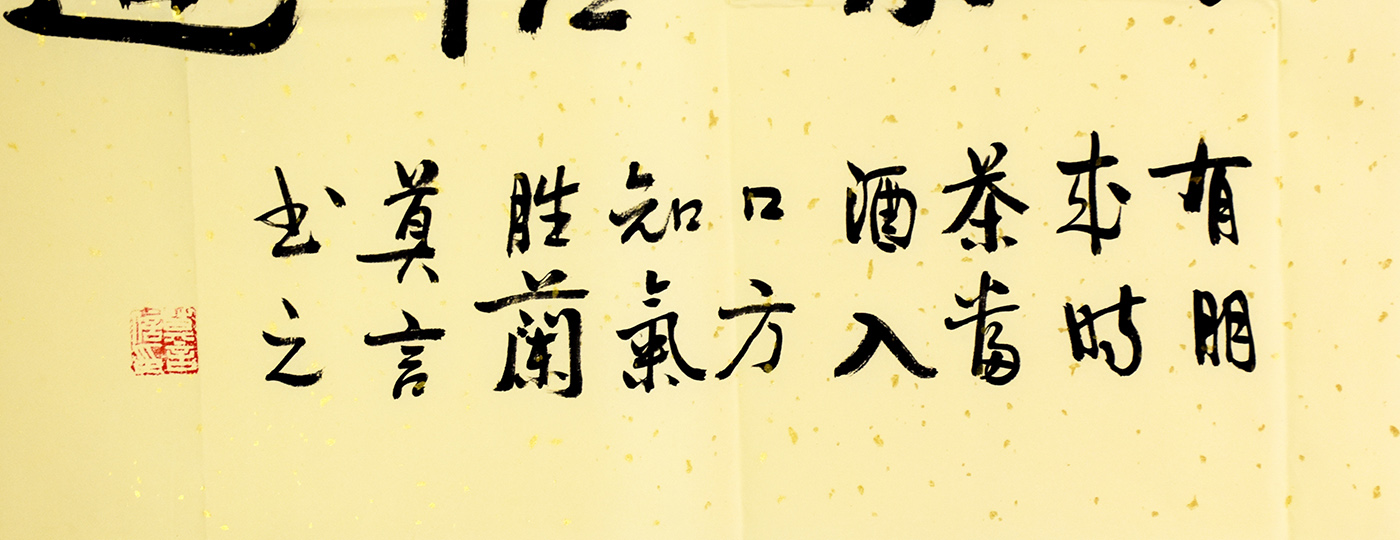 有朋
来时
茶當
酒入
口方
知氣
胜蘭
莫言
书之